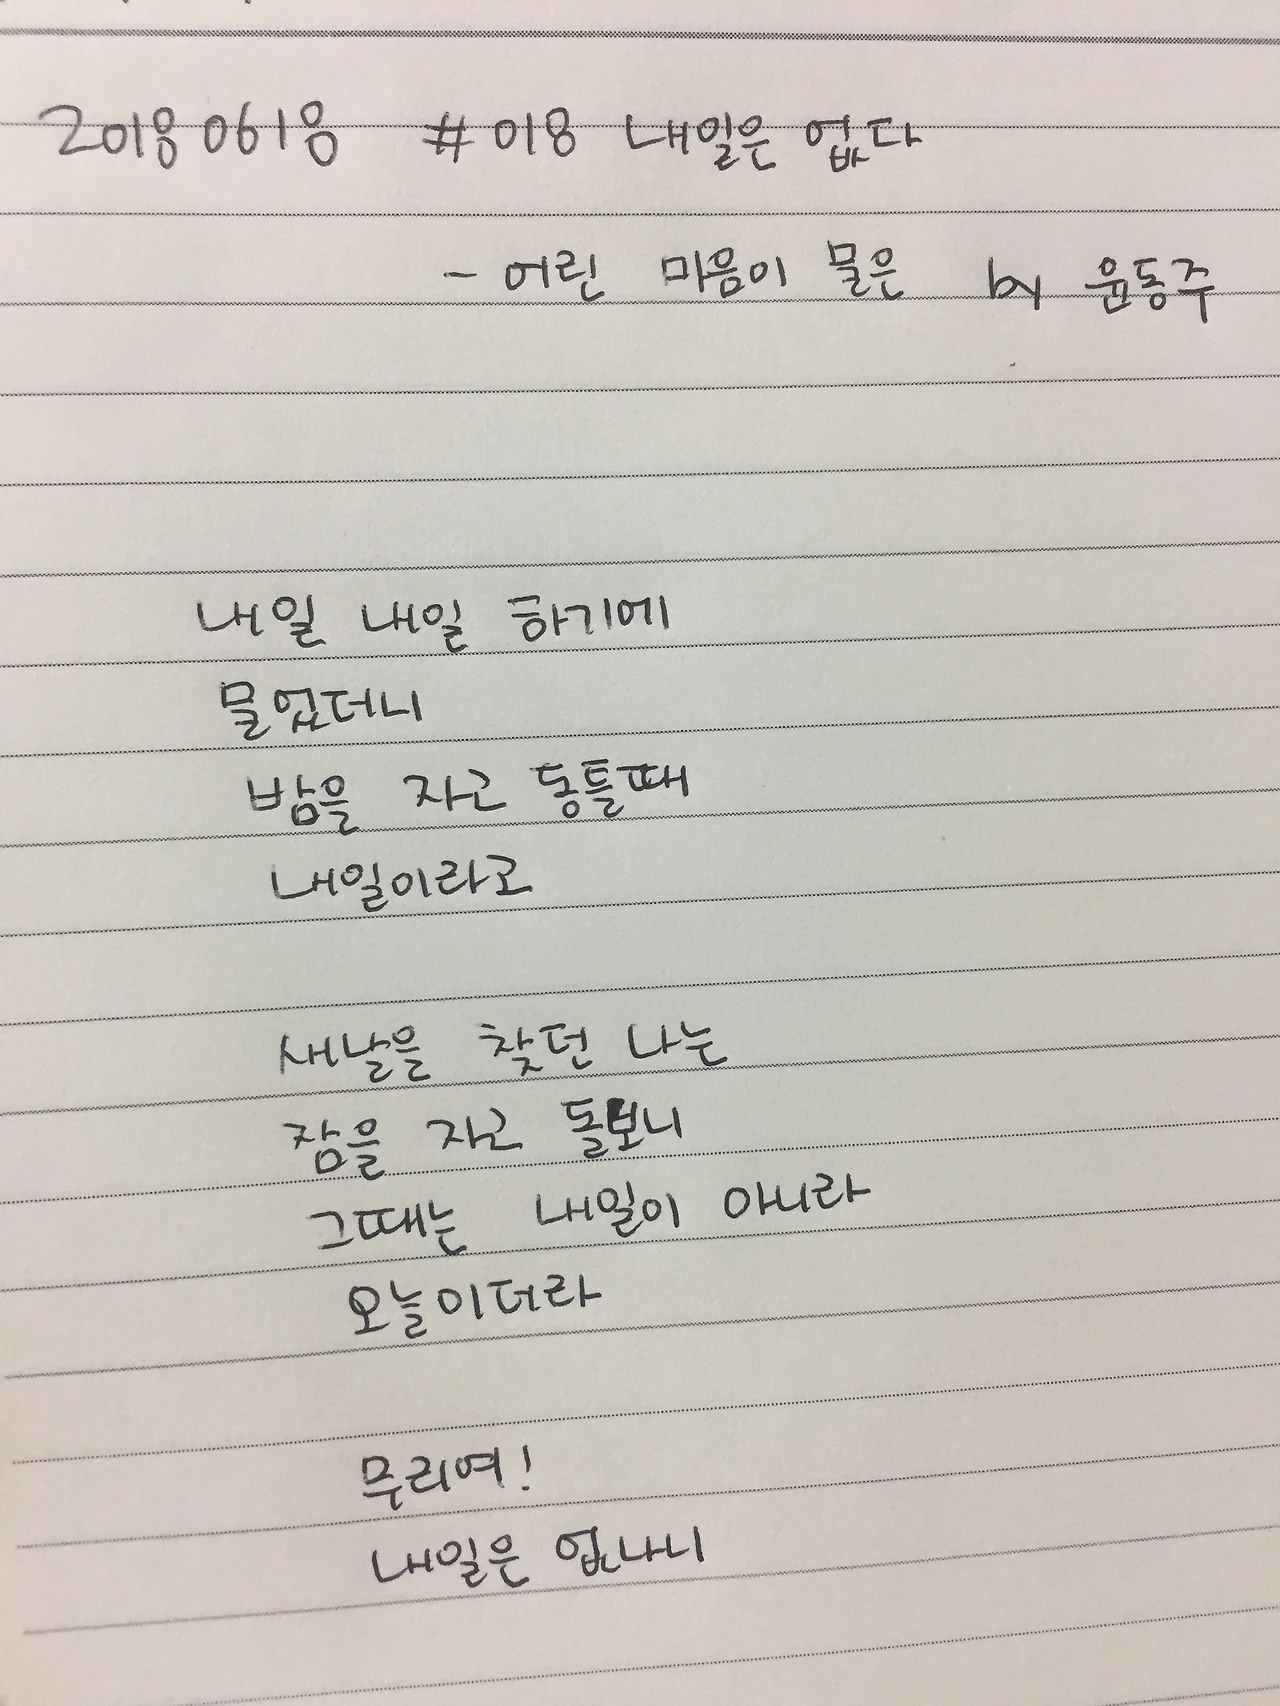 20180618 #018 내일은 없다
- 어린 마음이 물은 by 윤동주
내일 내일 하기에
물었더니
밤을 자고 동틀때
내일이라고
새날을 찾던 나는
잠을 자고 돌보니
그때는 내일이 아니라
오늘이더라
무리여!
내일은 없나니